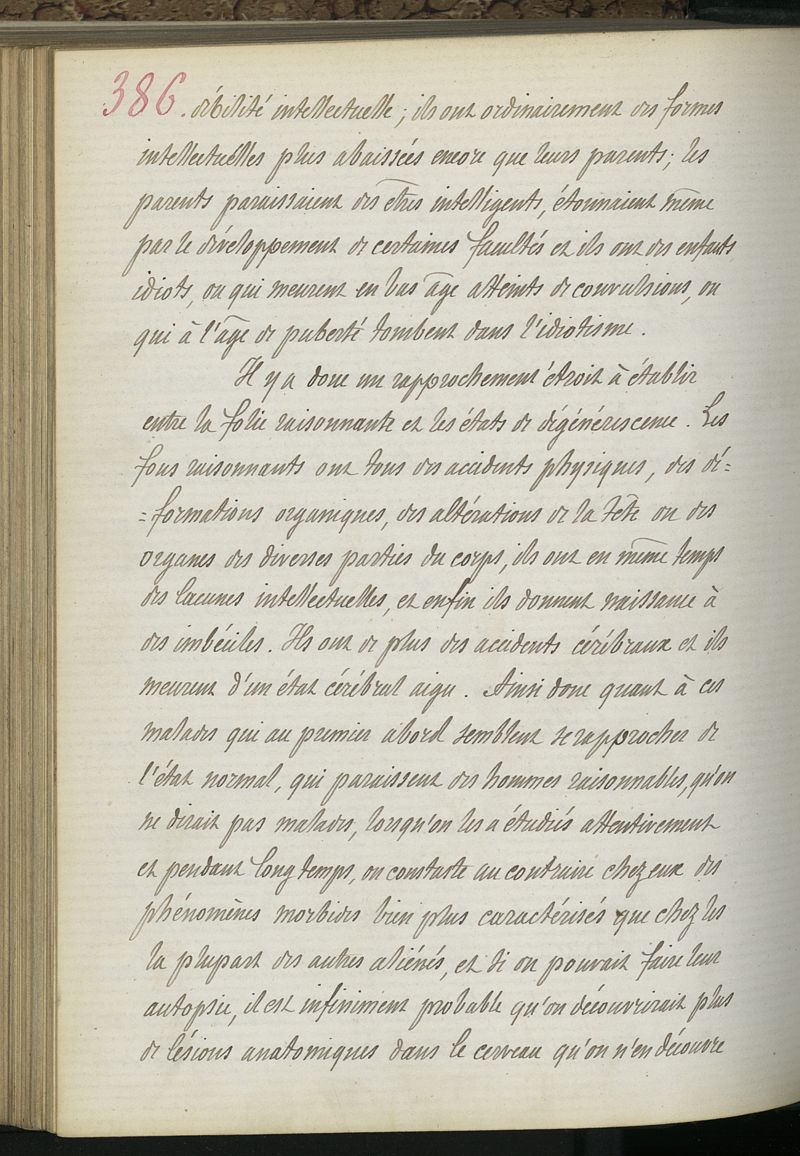 386. débilité intellectuelle ; ils ont ordinairement des formes
intellectuelles plus abaissées encore que leurs parents ; les
parents paraissaient des êtres intelligents, étonnaient même
par le développement de certaines facultés et ils ont des enfants
idiots, ou qui meurent en bas âge atteints de convulsions, ou
qui à l'âge de puberté tombent dans l'idiotisme.
Il y a donc un rapprochement étroit à établir
entre la folie raisonnante et les états de dégénérescence. Les
fous raisonnants ont tous des accidents physiques, des dé=
=formations organiques, des altérations de la tête ou des
organes des diverses parties du corps, ils ont en même temps
des lacunes intellectuelles, et enfin ils donnent naissance à
des imbéciles. Ils ont de plus des accidents cérébraux et ils
meurent d'un état cérébral aigu. Ainsi donc quant à ces
malades qui au premier abord semblent se rapprocher de
l'état normal, qui paraissent des hommes raisonnables, qu'on
ne dirait pas malades, lorsqu'on les a étudiés attentivement
et pendant longtemps, on constate au contraire chez eux des
phénomènes morbides bien plus caractérisés que chez les
la plupart des autres aliénés, et si on pouvait faire leur
autopsie, il est infiniment probable qu'on découvrirait plus
de lésions anatomiques dans le cerveau qu'on n'en découvre